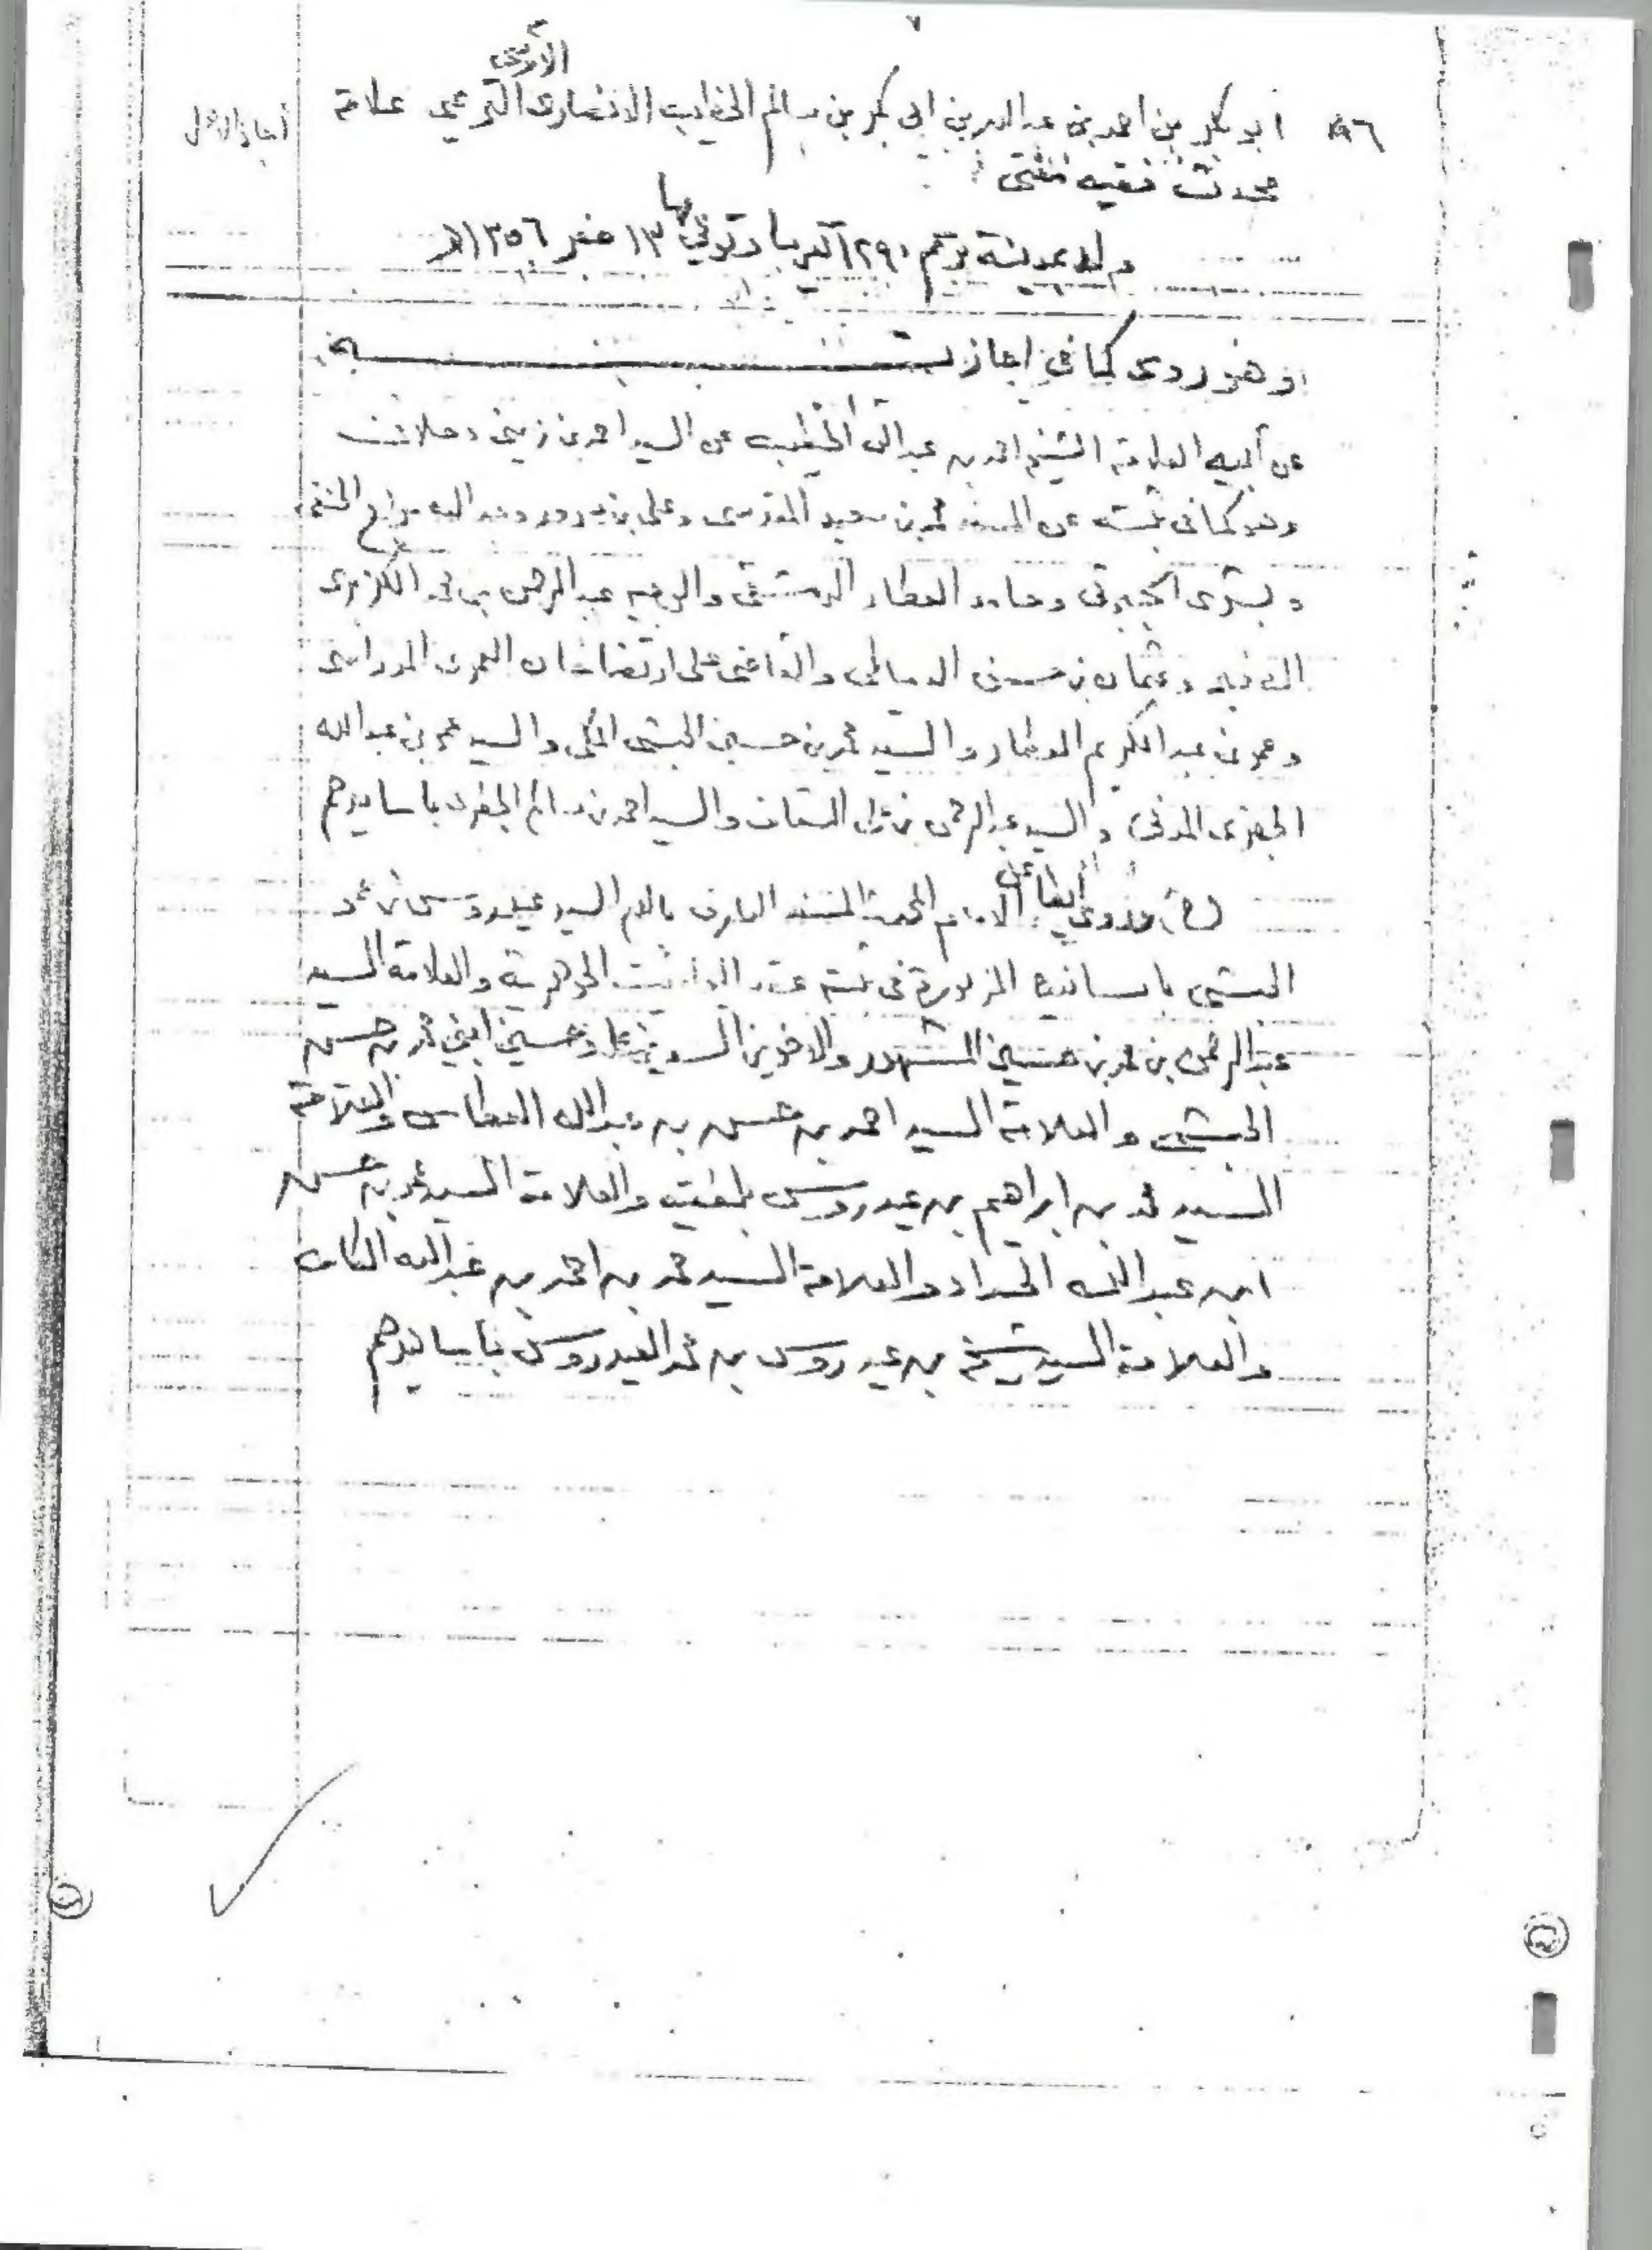 ٧
الأوسي
أبو بكر بن احمد بن عبدالله بن ابى بكر بن سالم الخطيب الانصارى التريمي علامة
محدث فقيه مفتى
ولد بمدينة تريم ١٢٩٠ تقريبا وتوفي بها ١٣ صفر ١٣٥٦هـ
وهو روى كما في اجازته
عن أبيه العلامة الشيخ احمد بن عبدالله الخطيب عن السيد احمد بن زيني دحلان
وهو كما فى ثبته عن المسند محمد بن سعيد المقدسى وعلى بن سرور وعبدالله سراج الحنفى
وبشرى الجبرتى وحامد العطار الدمشقى والوجيه عبدالرحمن بن محمد الكزبرى
وعثمان بن حسن الدمياطى والقاضى على ارتضا خان العمرى المدراسى
وعمر بن عبدالكريم العطار والسيد محمد بن حسين الحبشى المكى والسيد عمر بن عبدالله
الجفرى المدنى والسيد عبدالرحمن بن على السقاف والسيد احمد بن سالم الجفرى باسانيدهم
(ح) وروى أيضا عن الامام المحدث المسند العارف بالله السيد عيدروس بن عمر
الحبشى باسانيده المزبورة فى ثبته عقد اليواقيت الجوهرية والعلامة السيد
عبدالرحمن بن محمد بن حسين المشهور والاخوين السيدين على وحسين ابني محمد بن حسين
الحبشى والعلامة السيد احمد بن حسن بن عبدالله العطاس والعلامة
السيد محمد بن ابراهيم بن عيدروس بلفقيه والعلامة السيد محمد بن حسن
ابن عبدالله الحداد والعلامة السيد محمد بن احمد بن عبدالله الكاف
والعلامة السيد شيخ بن عيدروس بن محمد العيدروس باسانيدهم